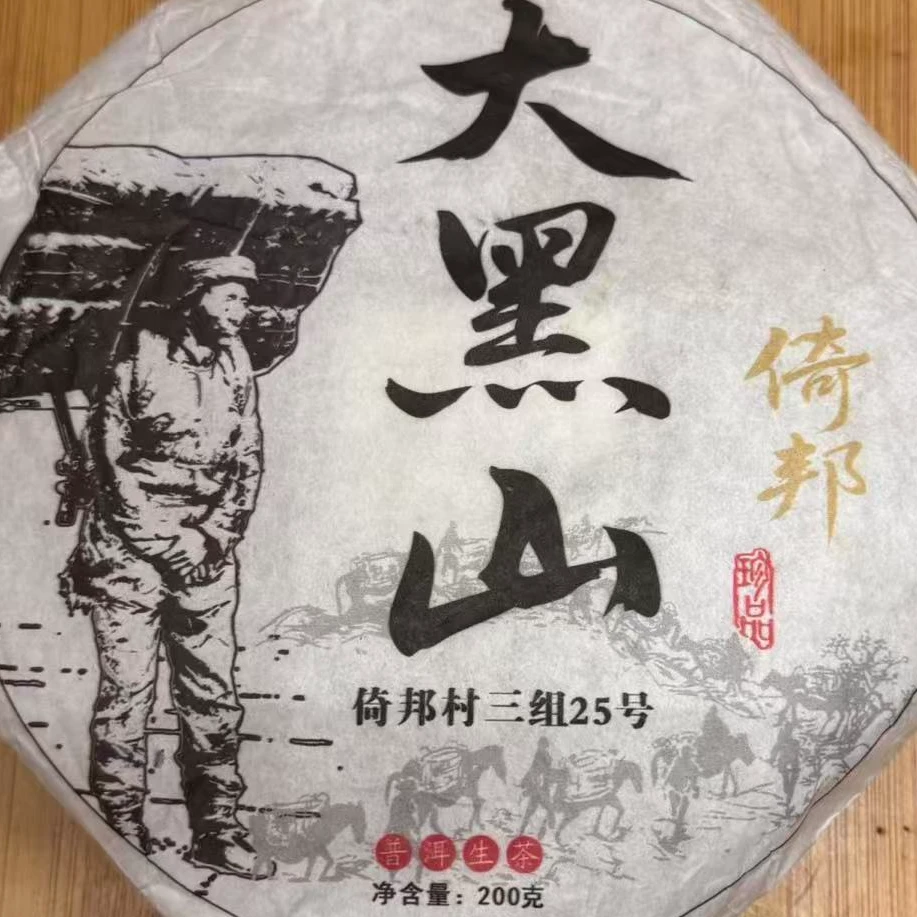 大黑山
倚邦
珍品
倚邦村三组25号
普洱生茶
净含量：200克